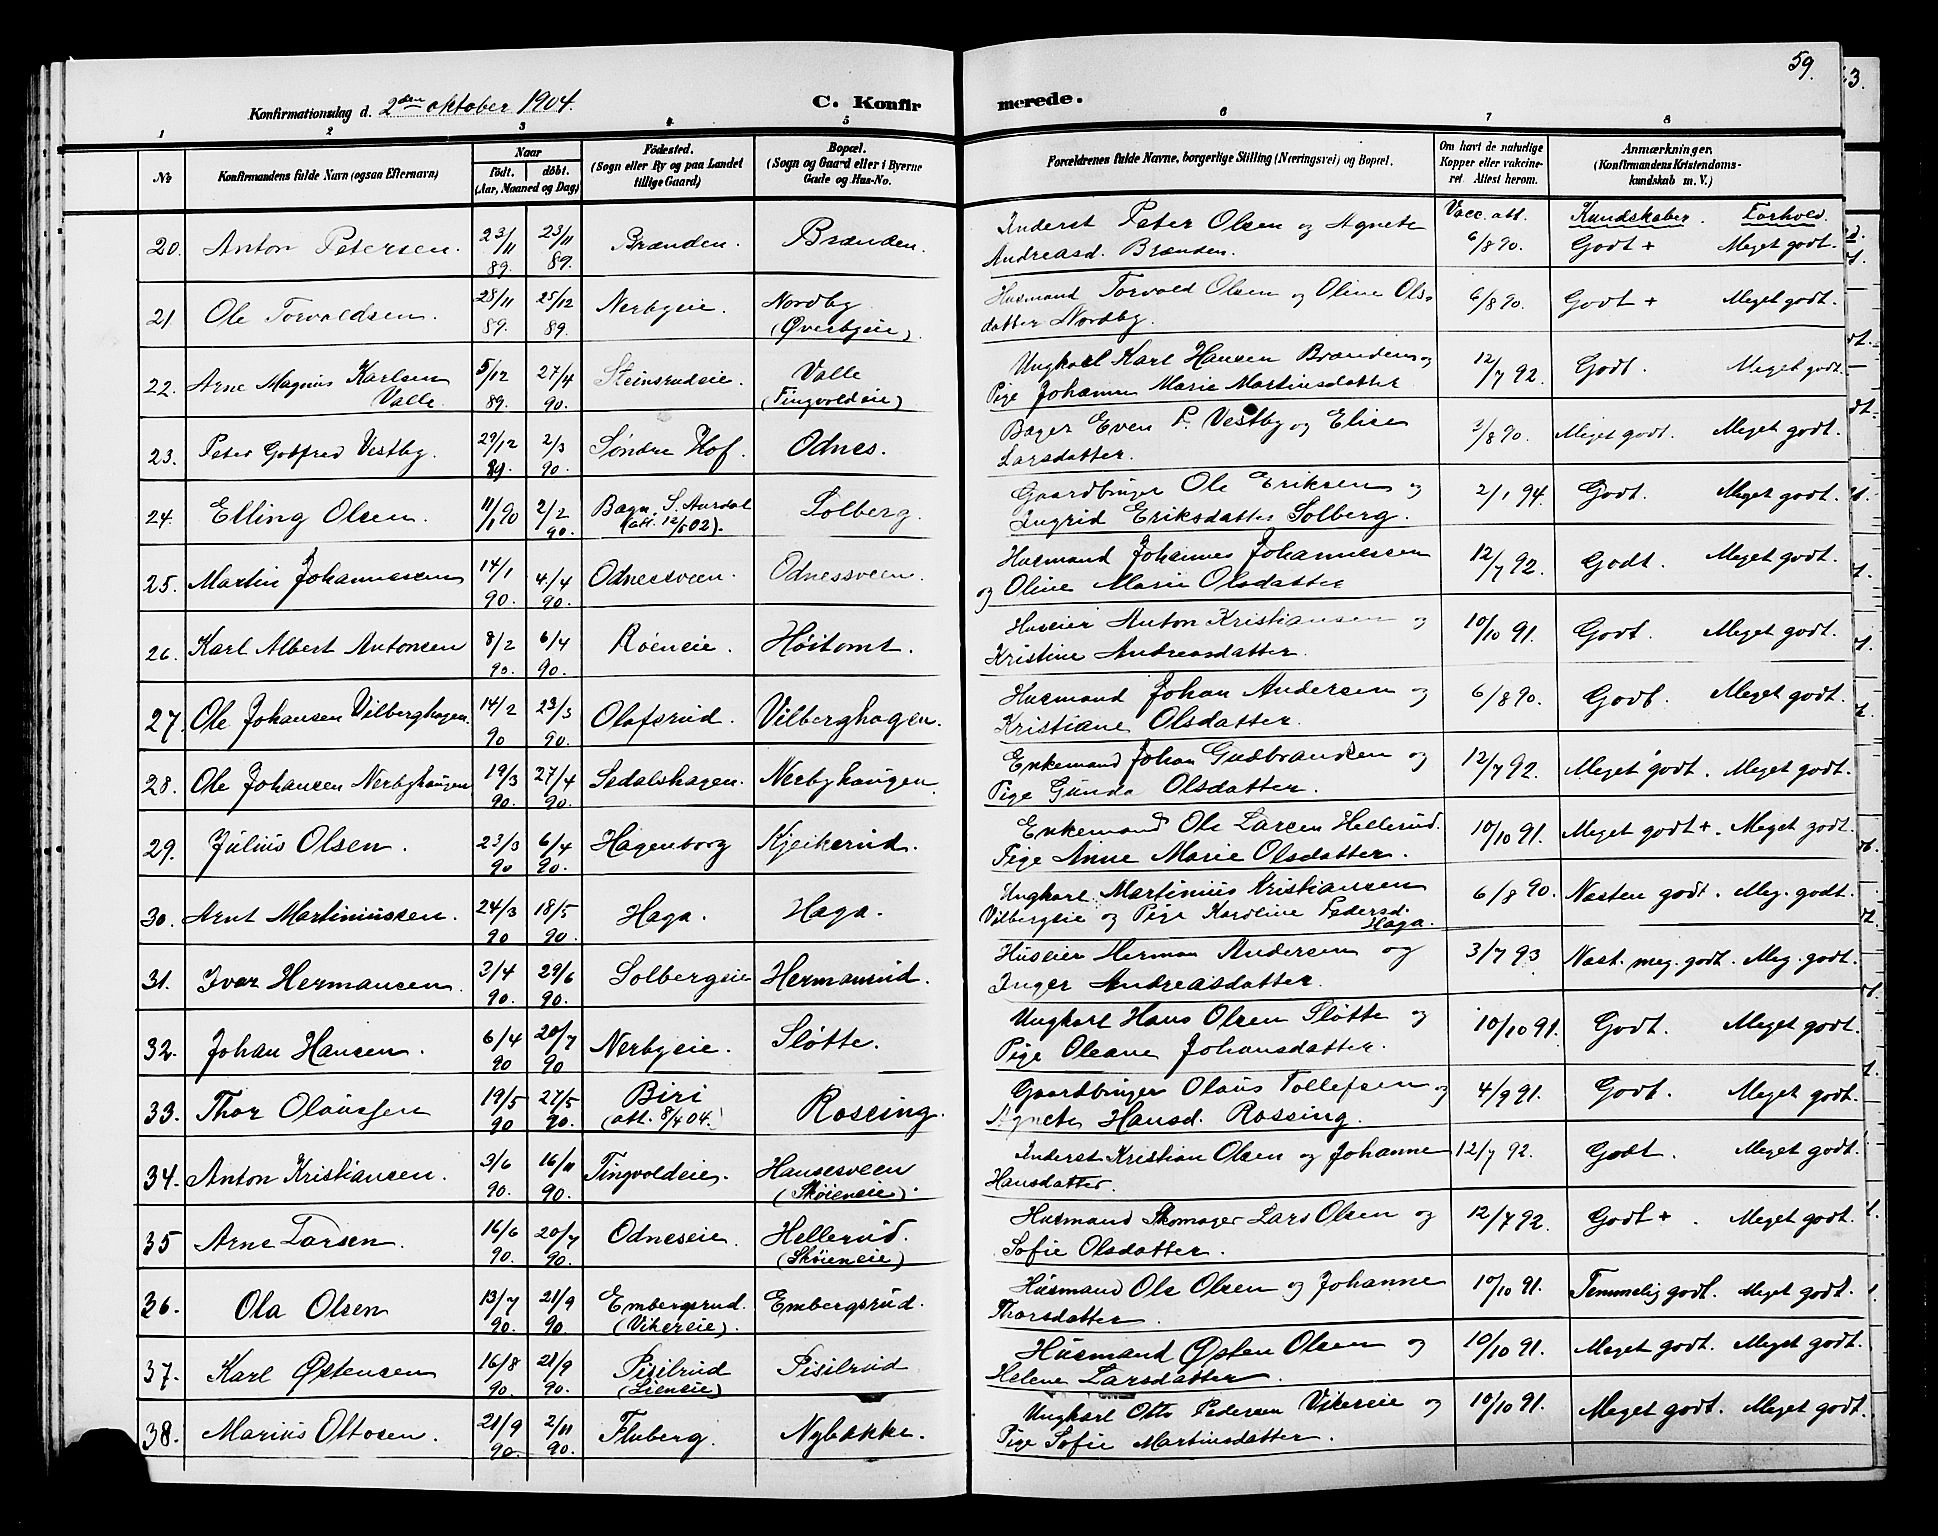 59.
3.
Konfirmationsdag d. 2den oktober 1904.
C. Konfirmerede.
1 2 3 4 5 6 7 8
No
Konfirmandens fulde Navn (ogsaa Efternavn)
Naar
födt. döbt.
(Aar, Maaned og Dag)
Födested.
(Sogn eller By og paa Landet
tillige Gaard)
Bopæl.
(Sogn og Gaard eller i Byerne
Gade og Hus-No.
Forældrenes fulde Navne, borgerlige Stilling (Næringsvei) og Bopæl.
Om havt de naturlige
Kopper eller vakcine-
ret. Attest herom.
Anmærkninger.
(Konfirmandens Kristendoms-
kundskab m. V.)
Vacc. att. Kundskaber. Forhold.
20. Anton Petersen. 23/11 89. 23/11 89. Brænden. Brænden. Inderst Peter Olsen og Agnete
Andreasd. Brænden. 6/8 90. Godt + Meget godt.
21. Ole Torvaldsen. 28/11 89. 25/12 89. Nerbyeie. Nordby
(Øverbyeie). Husmand Torvald Olsen og Oline Ols-
datter Nordby. 6/8 90. Godt + Meget godt.
22. Arne Magnus Karlsen
Valle. 5/12 89. 27/4 90. Steinsrudeie. Valle
(Tingvoldeie) Ungkarl Karl Hansen Brænden og
Pige Johanne Marie Martinsdatter 12/7 92. Godt. Meget godt.
23. Peter Godfred Vestby. 29/12 89. 2/3 90. Søndre Hof. Odnes. Bager Even P. Vestby og Elise
Larsdatter. 3/8 90. Meget godt. Meget godt.
24. Elling Olsen. 11/1 90 2/2 90. Bagn, S. Aurdal
(att. 12/5 02). Solberg. Gaardbruger Ole Eriksen og
Ingrid Eriksdatter Solberg. 2/1 94. Godt. Meget godt.
25. Martin Johannessen 14/1 90. 4/4 90. Odnessveen. Odnessveen. Husmand Johannes Johannessen
og Oline Marie Olsdatter 12/7 92. Godt. Meget godt.
26. Karl Albert Antonsen 8/2 90. 6/4 90. Røeneie. Høitomt. Huseier Anton Kristiansen og
Kristine Andreasdatter. 10/10 91. Godt. Meget godt.
27. Ole Johansen Vilberghagen. 14/2 90 23/3 90. Olafsrud. Vilberghagen. Husmand Johan Andersen og
Kristiane Olsdatter. 6/8 90. Godt. Meget godt.
28. Ole Johansen Nerbyhaugen 19/3 90. 27/4 90. Sedalshagen. Nerbyhaugen. Enkemand Johan Gudbrandsen og
Pige Gunda Olsdatter. 12/7 92. Meget godt. Meget godt.
29. Julius Olsen. 23/3 90 6/4 90. Hagenborg Kjeikerud. Enkemand Ole Larsen Hellerud.
Pige Anne Marie Olsdatter. 10/10 91. Meget godt +. Meget godt.
30. Arnt Martiniussen. 24/3 90 18/5 90. Haga. Haga. Ungkarl Martinius Kristiansen
Vilbergeie og Pige Karoline Pedersd.
Haga. 6/8 90. Næsten godt. Meg. godt.
31. Iver Hermansen. 3/4 90. 29/6 90. Solbergeie Hermansrud. Huseier Herman Andersen og
Inger Andreasdatter. 3/7 93 Næst. meg. godt. Meg. godt.
32. Johan Hansen. 6/4 90 20/7 90 Nerbyeie. Sløtte. Ungkarl Hans Olsen Sløtte og
Pige Oleane Johansdatter. 10/10 91. Godt. Meget godt.
33. Thor Olaussen 19/5 90 27/5 90. Biri
(att. 8/4 04.) Rossing. Gaardbruger Olaus Tollefsen og
Agnete Hansd. Rossing. 4/9 91. Godt. Meget godt.
34. Anton Kristiansen. 3/6 90. 16/11 90. Tingvoldeie. Hansesveen
(Skøieneie). Inderst Kristian Olsen og Johanne
Hansdatter. 12/7 92. Godt. Meget godt.
35 Arne Larsen. 16/6 90. 20/7 90. Odneseie. Hellerud.
(Skøieneie) Husmand Skomager Lars Olsen og
Sofie Olsdatter. 12/7 92. Godt +. Meget godt.
36. Ola Olsen 13/7 90. 21/9 90. Embergsrud.
(Vikereie). Embergsrud. Husmand Ole Olsen og Johanne
Thorsdatter. 10/10 91. Temmelig godt. Meget godt.
37. Karl Østensen 16/8 90. 21/9 90. Pisilrud
(Lieneie) Pisilrud Husmand Østen Olsen og
Helene Larsdatter. 10/10 91. Meget godt. Meget godt.
38. Marius Ottosen. 21/9 90. 2/11 90. Fluberg. Nybakke. Ungkarl Otto Pedersen Vikereie og
Pige Sofie Martinsdatter. 10/10 91. Meget godt. Meget godt.